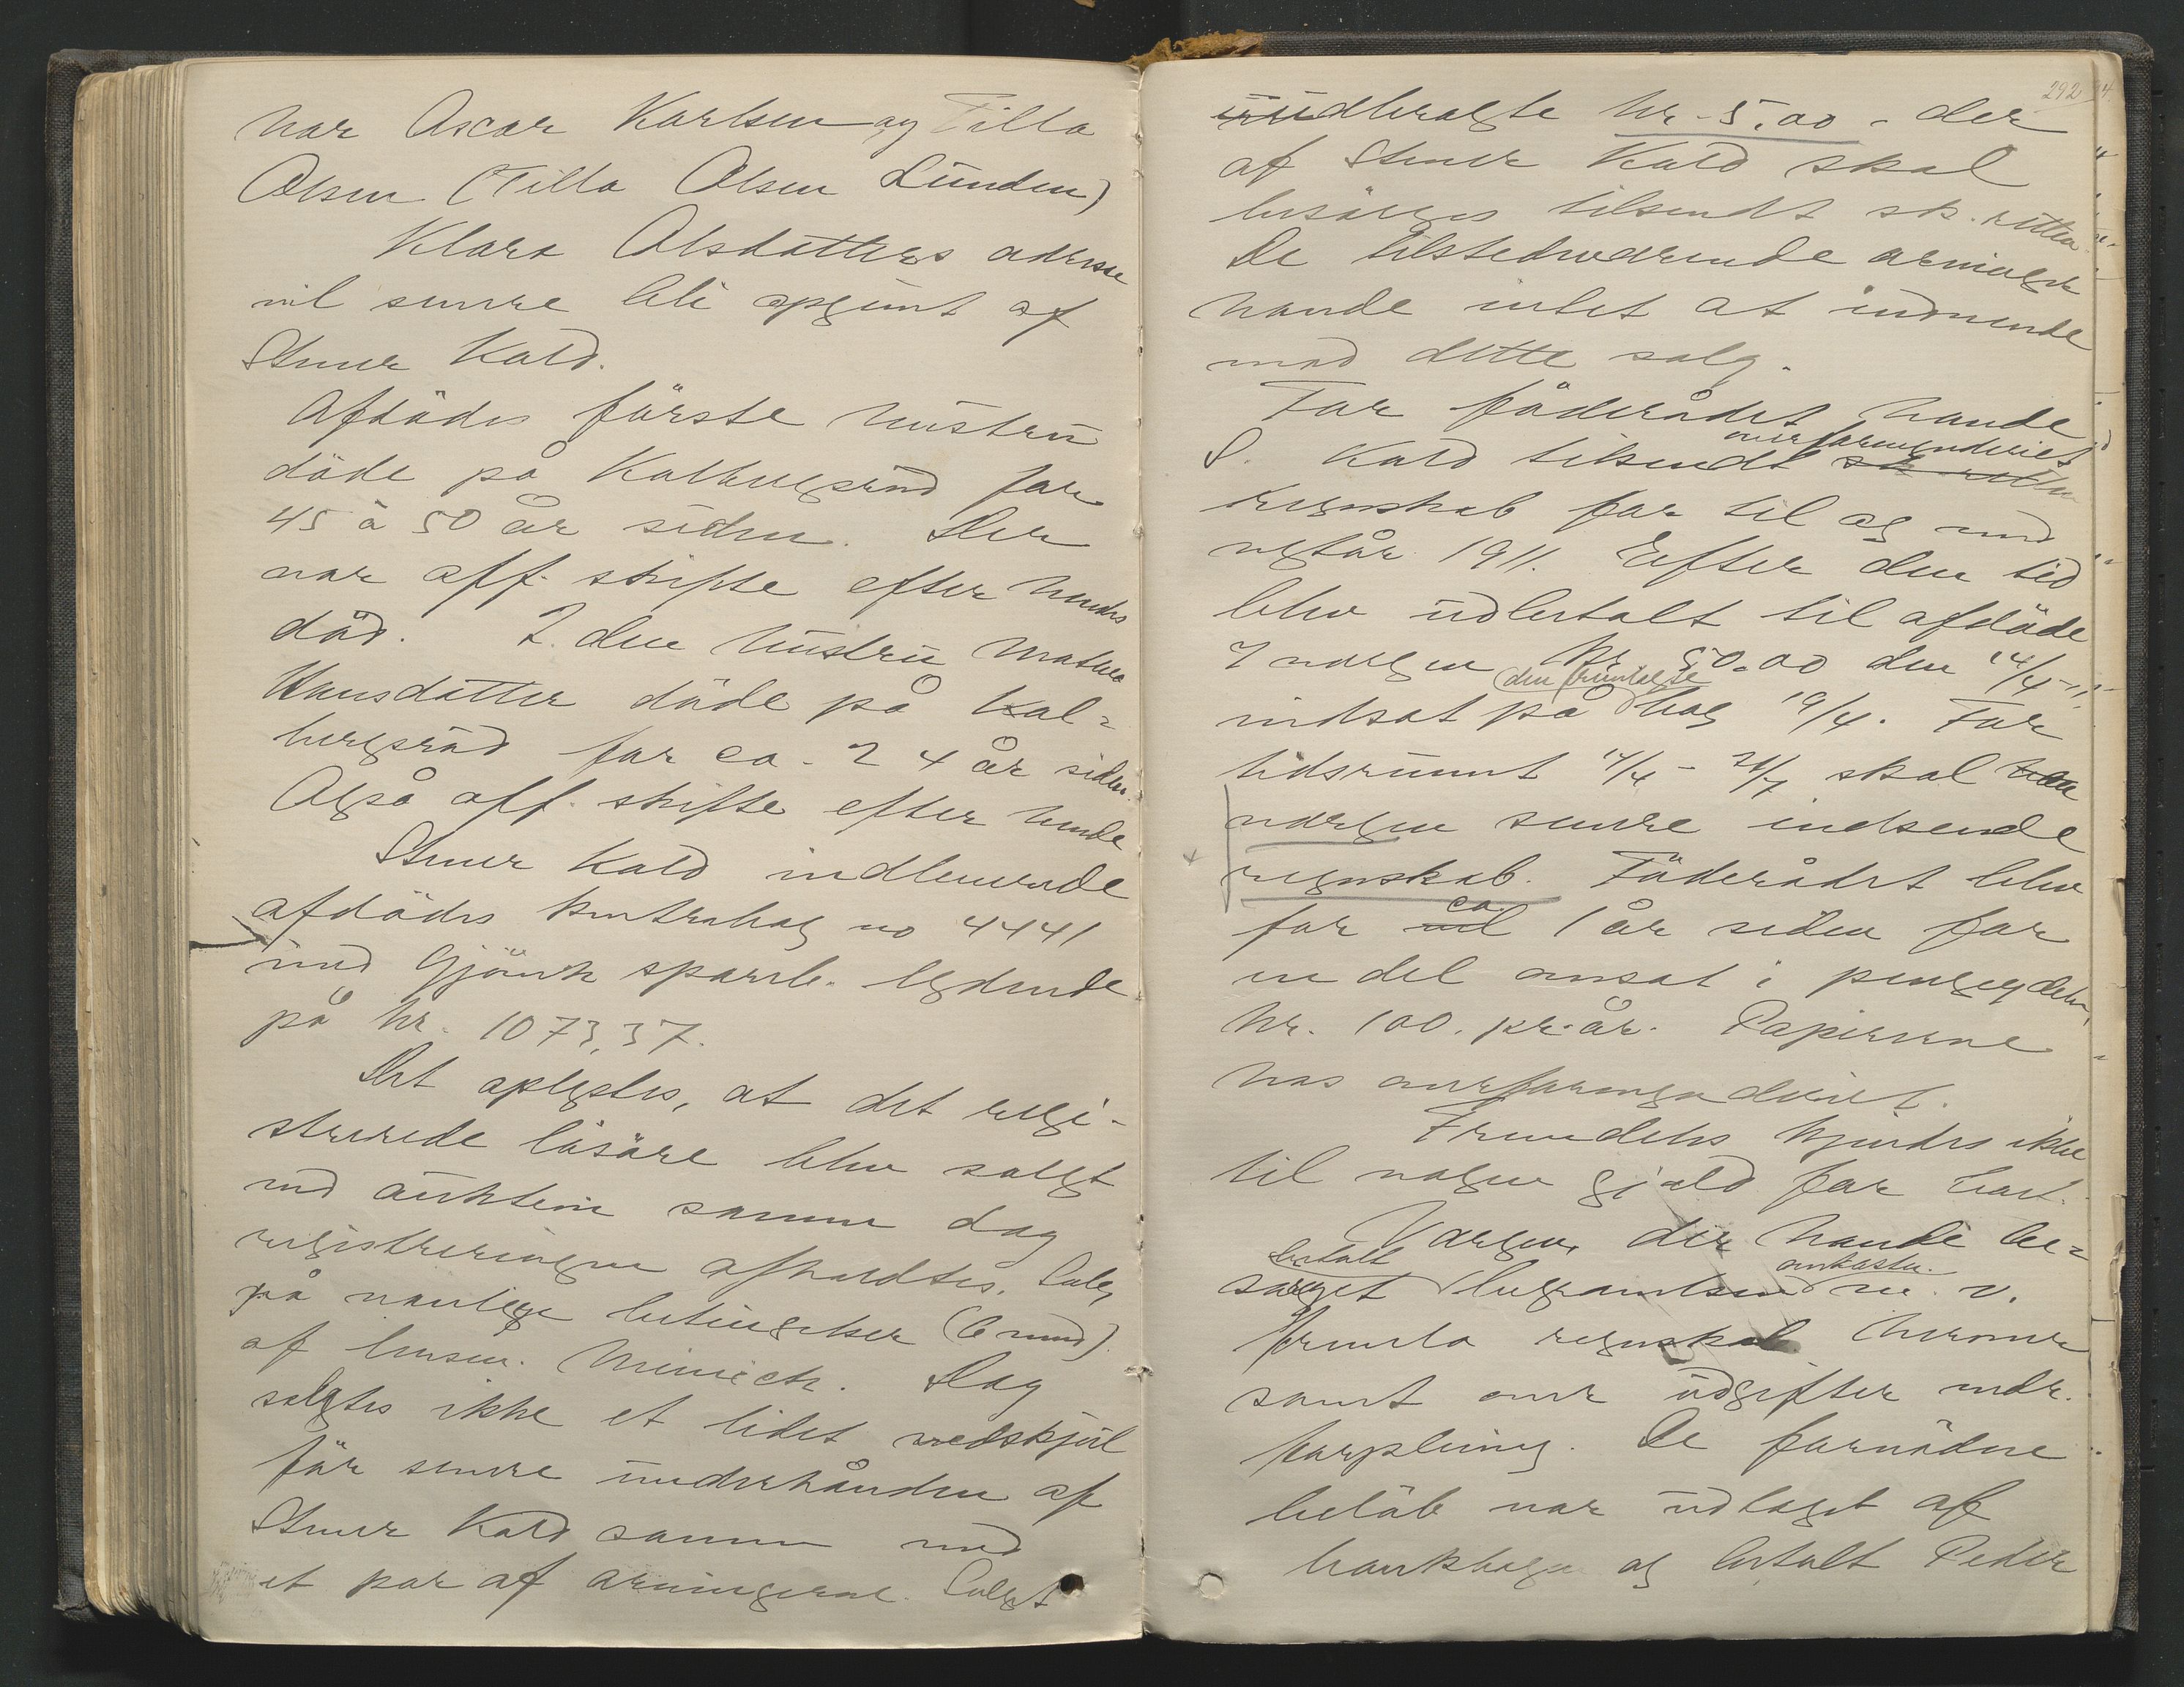 var Oscar Karlsen og Tilla
Olsen (Tilla Olsen Lunden)
Klara Olsdatters adresse
vil senere bli opgivnt af
Stener Kald.
Afdödes förste hustru
döde på Kalbergsrud for
45 à 50 år siden. Der
var off. skifte efter hendes
död. 2. den hustru Mathea
Hansdatter döde på Kal=
bergsrud for ca. 24 år siden.
Også off. skifte efter hende
Stener Kald indleverede
afdödes kontrabog no 4441
med Gjövik spareb. lydende
på kr. 1073,37.
Det oplystes, at det regi-
strerede lösöre blev solgt
ved auktion samme dag
registreringen afholdtes. Salg
på vanlige betingelser (6 mnd)
af lensm. Minich. Dog
solgtes ikke et lidet vedskjul
för senere underhånden af
Stener Kald sammen med
et par af arvingerne. Solgt
292
indbragte kr. 5,00 - der
af Stener Kald skal
besörges tilsendt sk. retten
De tilstedeværende arvinger
havde intet at indvende
mod dette salg.
For föderådet havde
overformynderiet
S. Kald tilsendt sk. retten
regnskab for til og med
nytår 1911. Efter den tid
blev udbetalt til afdöde
v værgen kr. 50.00 den 14/4-11
den fremlagte
indsat på bog 19/4. For
tidsrummet 14/4 - 24/7 skal
værgen senere indsende
regnskab. Föderådet blev
ca
for 1 år siden for
en del omsat i pengeydelse,
kr. 100. pr. år. Papirerne
hos overformynderiet.
Fremdeles kjendes ikke
til nogen gjæld for bort.
Værgen, der havde be=
betalt omkostn.
sörget begravelsen m. v.
fremla regnskab herover
samt over udgifter vedr.
forpleining. De fornödne
belöb var udtaget af
bankbogen og betalt Peder